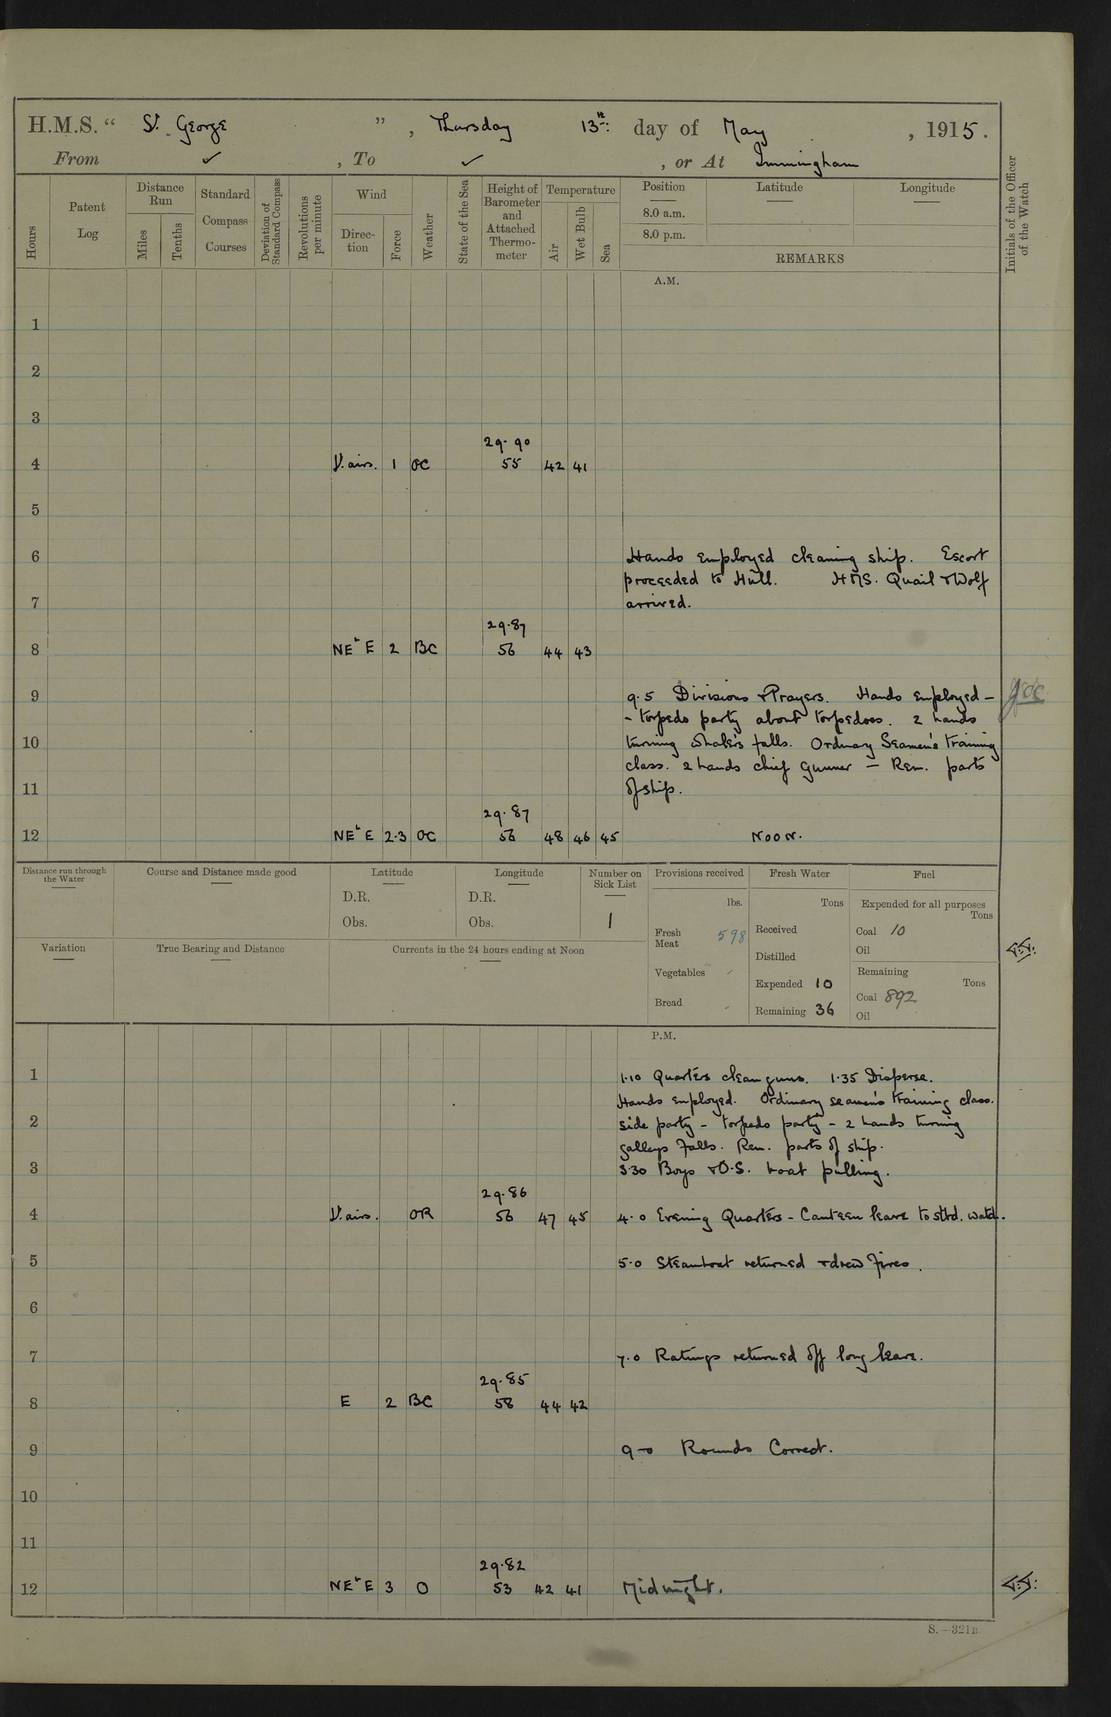 H.M.S. “ St. George ” , Thursday 13th: day of May , 1915.
From ✓ , To ✓ , or At Immingham
Hours
Patent Log
Distance Run
Miles
Tenths
Standard Compass Courses
Deviation of Standard Compass
Revolutions per minute
Wind
Direc-tion
Force
Weather
State of the Sea
Height of Barometer and Attached Thermo-meter
Temperature
Air
Wet Bulb
Sea
Position
8.0 a.m.
8.0 p.m.
Latitude
Longitude
REMARKS
Initials of the Officer of the Watch
A.M.
1
2
3
29.90
4 V. airs. 1 OC 55 42 41
5
6 Hands employed cleaning ship. Escort
proceeded to Hull. HMS. Quail & Wolf
7 arrived.
29.87
8 NEbE 2 BC 56 44 43
9 9.5 Divisions & Prayers. Hands employed –
- torpedo party about torpedoes. 2 hands
10 turning whaler's falls. Ordinary Seamen's training
class. 2 hands chief gunner – Rem. parts
11 of ship.
29.87
12 NEbE 2.3 OC 56 48 46 45 Noon.
Distance run through the Water
Course and Distance made good
Latitude
D.R.
Obs.
Longitude
D.R.
Obs.
Number on Sick List
1
Provisions received
lbs.
Fresh Meat 598
Vegetables
Bread
Fresh Water
Tons
Received
Distilled
Expended 10
Remaining 36
Fuel
Expended for all purposes
Tons
Coal 10
Oil
Remaining
Tons
Coal 892
Oil
Variation
True Bearing and Distance
Currents in the 24 hours ending at Noon
P.M.
1 1.10 Quarters clean guns. 1.35 Disperse.
Hands employed. Ordinary seamen's training class.
2 side party – torpedo party – 2 hands turning
galleys falls. Rem. parts of ship.
3 3.30 Boys & O.S. boat pulling.
29.86
4 V. airs. OR 56 47 45 4.0 Evening Quarters – Canteen leave to stbd. watch.
5 5.0 Steamboat returned & drew fires.
6
7 7.0 Ratings returned off long leave.
29.85
8 E 2 BC 58 44 42
9 9-0 Rounds Correct.
10
11
29.82
12 NEbE 3 O 53 42 41 Midnight.
S.—321B